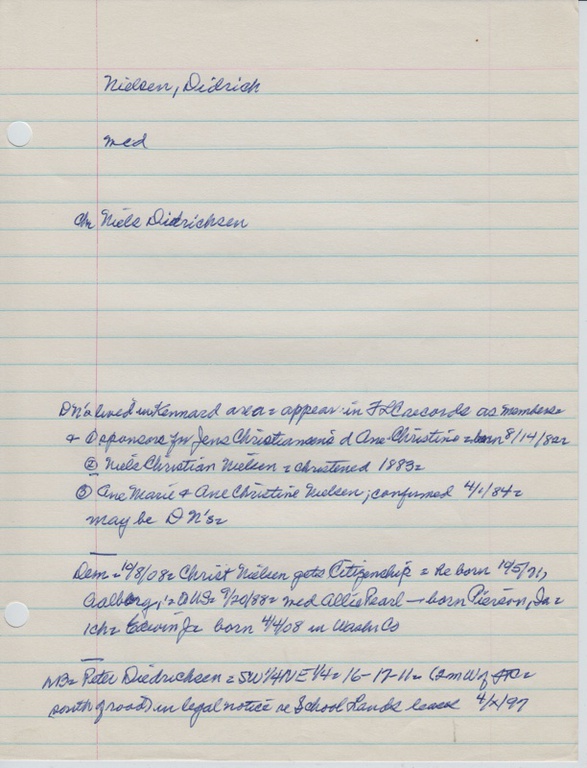 Nielsen, Didrich
med
Ch Niels Didrichsen
DN's lived in Kennard area = appear in FLC records as members =
+ ① sponsors for Jens Christiansen's d Ane Christine = born 8/14/82
② Niels Christian Nielsen = christened 1883=
③ Ane Marie & Ane Christine Nielsen; confirmed 4/1/84=
may be DN's=
Dem = 10/8/08 = Christ Nielsen gets Citizenship = He born 10/5/71,
Aalborg, = US = 9/20/88 = med Allie Pearl — born Pierson, Ia =
1ch = Edwin J = born 4/4/08 in Wash Co
NB = Peter Diedrichsen = SW 1/4 NE 1/4 = 16-17-11 = (2m W of
south of road) in legal notice re School Lands lease 4/2/97